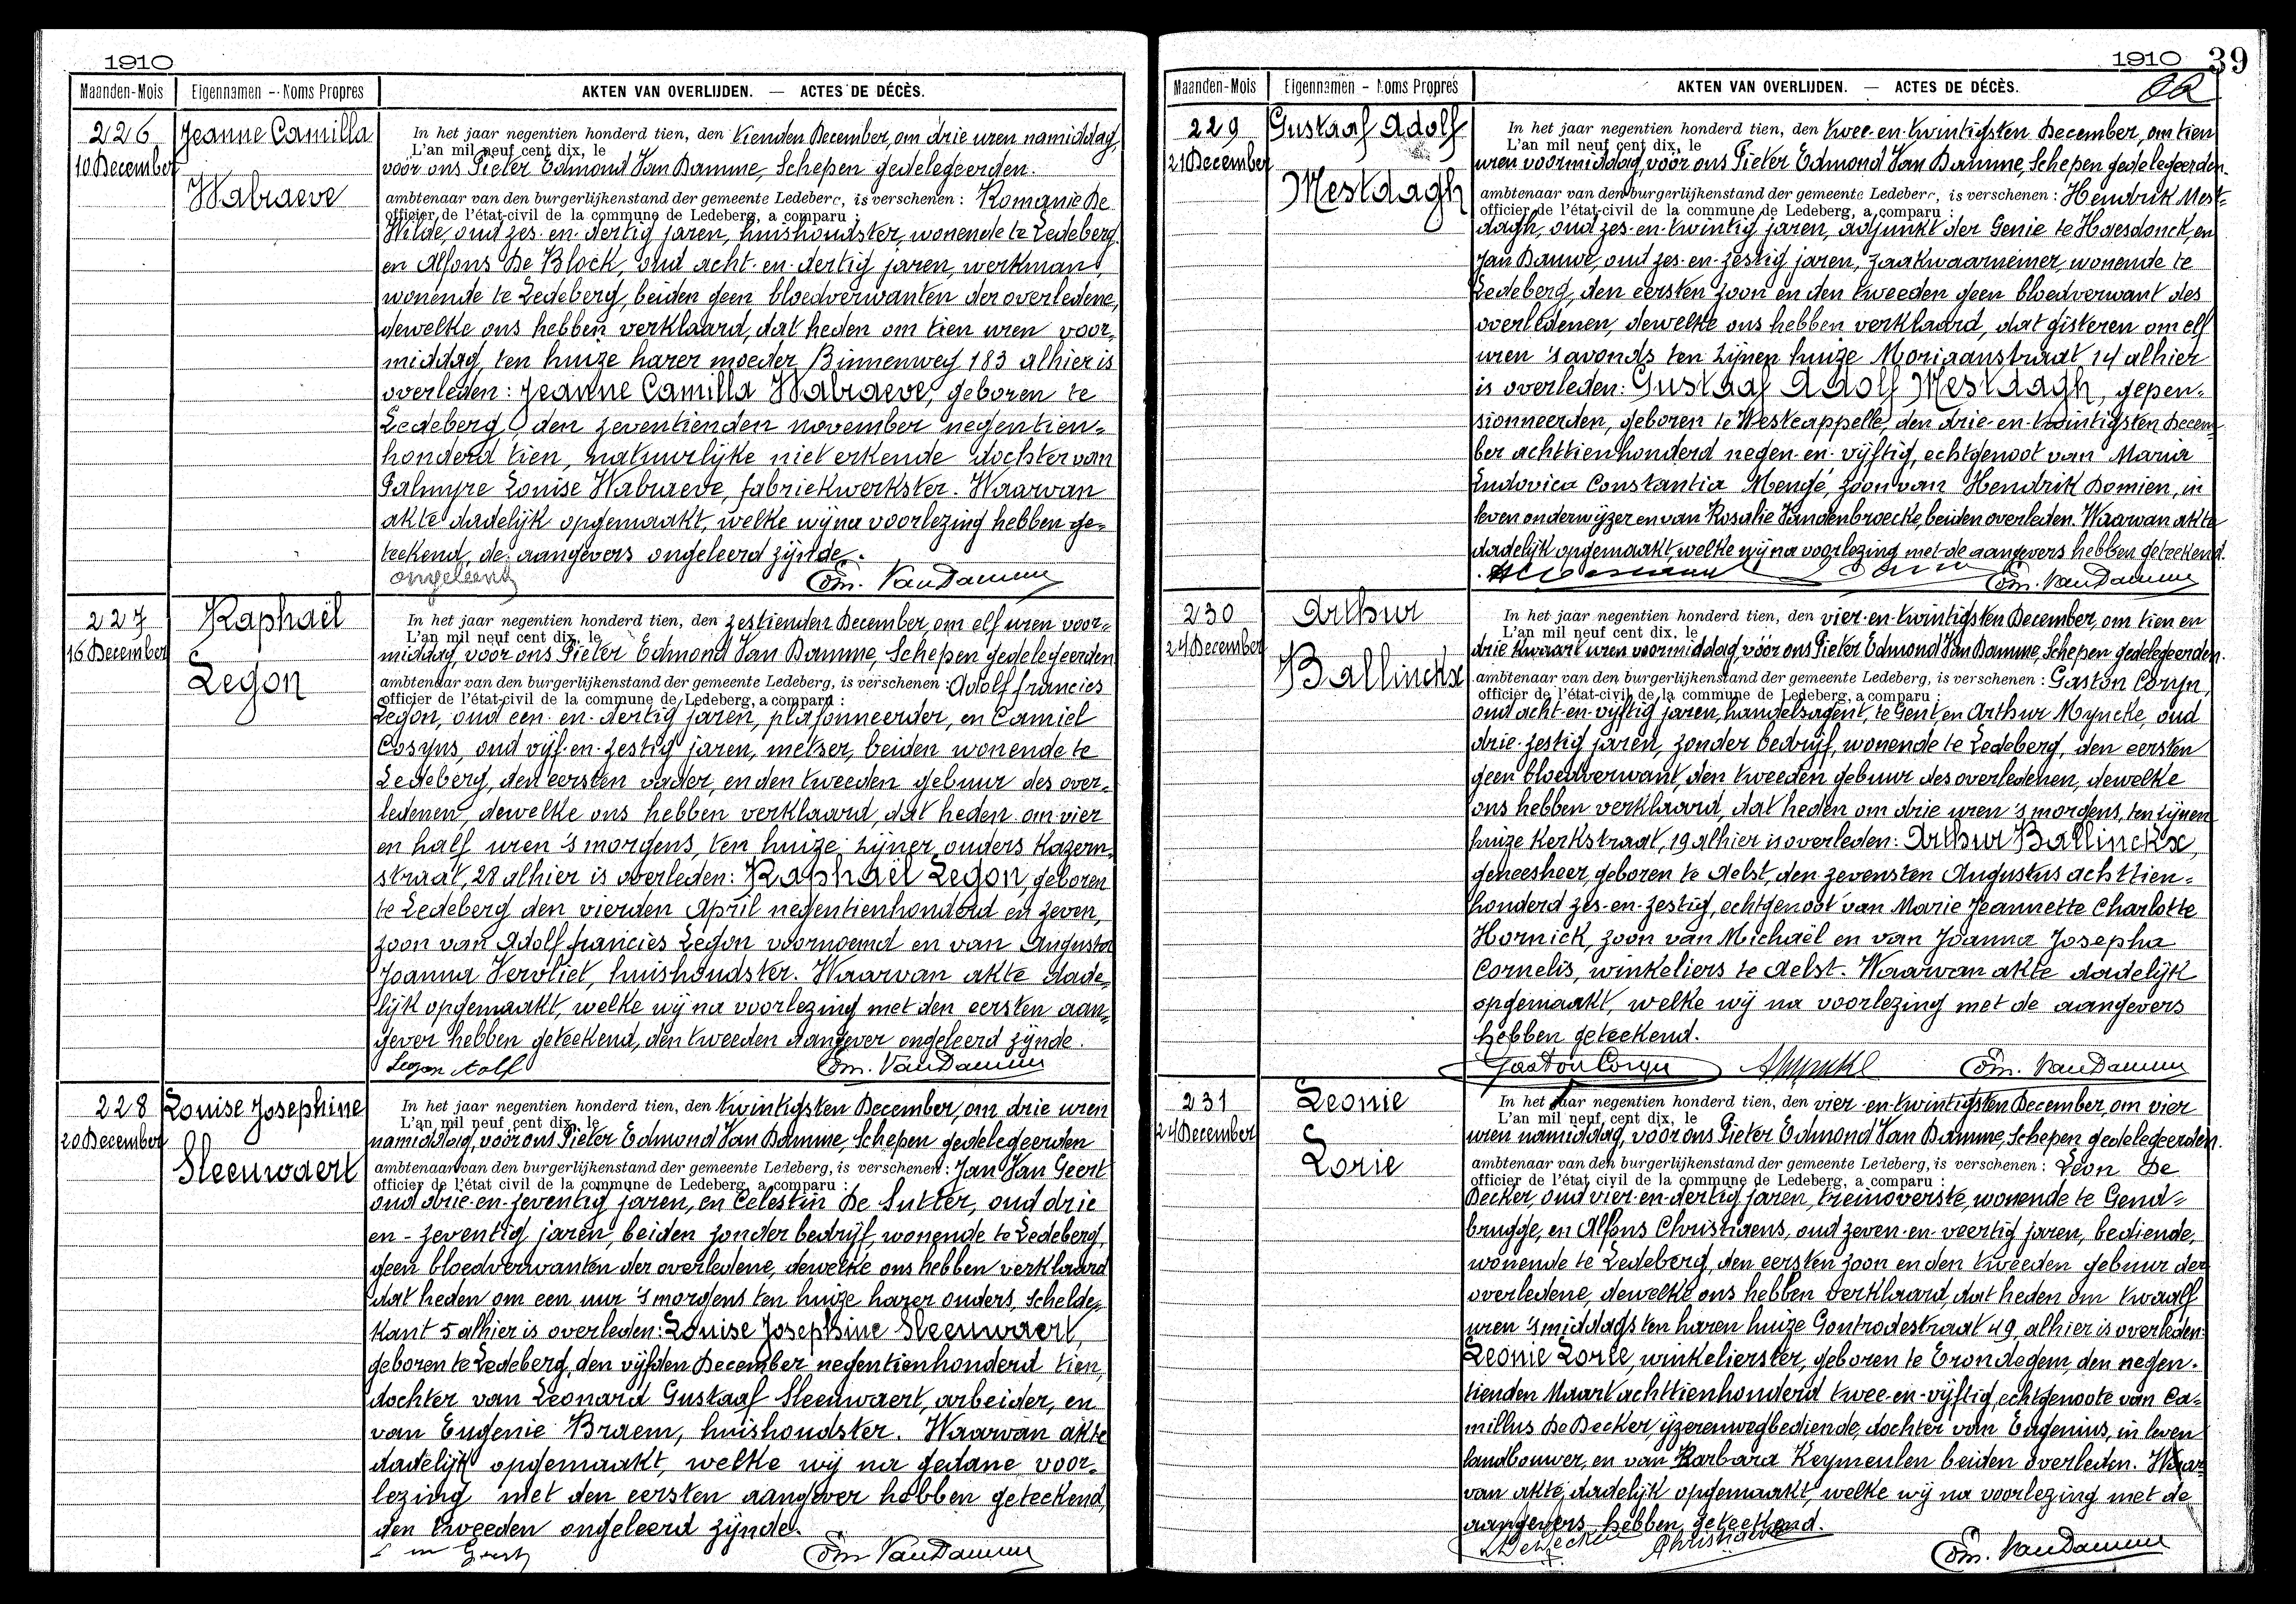 1910
Maanden-Mois
Eigennamen - Noms Propres
AKTEN VAN OVERLIJDEN. — ACTES DE DÉCÈS.
226
10 December
Jeanne Camilla
Wabraeve
In het jaar negentien honderd tien, den tienden December, om drie uren namiddag,
L'an mil neuf cent dix, le
vóór ons Pieter Edmond Van Damme, Schepen gedelegeerden.
ambtenaar van den burgerlijkenstand der gemeente Ledeberg, is verschenen : Romanie De
officier de l'état-civil de la commune de Ledeberg, a comparu :
Wilde, oud zes-en-dertig jaren, huishoudster, wonende te Ledeberg
en Alfons De Block, oud acht-en-dertig jaren, werkman,
wonende te Ledeberg, beiden geen bloedverwanten der overledene,
dewelke ons hebben verklaard, dat heden om tien uren voor-
middag, ten huize harer moeder Binnenweg 183 alhier is
overleden: Jeanne Camilla Wabraeve, geboren te
Ledeberg, den zeventienden november negentien-
honderd tien, natuurlijke niet erkende dochter van
Palmyre Louise Wabraeve, fabriekwerkster. Waarvan
akte dadelijk opgemaakt, welke wij na voorlezing hebben ge-
teekend, de aangevers ongeleerd zijnde.
ongeleerd
Edm. Van Damme
227
16 December
Raphaël
Legon
In het jaar negentien honderd tien, den zestienden December, om elf uren voor-
L'an mil neuf cent dix, le
middag, vóór ons Pieter Edmond Van Damme, Schepen gedelegeerden
ambtenaar van den burgerlijkenstand der gemeente Ledeberg, is verschenen : Adolf francies
officier de l'état-civil de la commune de Ledeberg, a comparu :
Legon, oud een-en-dertig jaren, plafonneerder, en Camiel
Cosyns, oud vijf-en-zestig jaren, metser, beiden wonende te
Ledeberg, den eersten vader, en den tweeden gebuur des over-
ledenen, dewelke ons hebben verklaard, dat heden om vier
en half uren 's morgens, ten huize zijner ouders Kazern-
straat, 28 alhier is overleden: Raphaël Legon, geboren
te Ledeberg den vierden April negentienhonderd en zeven,
zoon van Adolf francies Legon voornoemd en van Augusta
Joanna Vervliet, huishoudster. Waarvan akte dade-
lijk opgemaakt, welke wij na voorlezing met den eersten aan-
gever hebben geteekend, den tweeden aangever ongeleerd zijnde.
Legon Adolf
Edm. Van Damme
228
20 December
Louise Josephine
Sleeuwaert
In het jaar negentien honderd tien, den twintigsten December, om drie uren
L'an mil neuf cent dix, le
namiddag, vóór ons Pieter Edmond Van Damme, Schepen gedelegeerden
ambtenaar van den burgerlijkenstand der gemeente Ledeberg, is verschenen : Jan Van Geert
officier de l'état civil de la commune de Ledeberg, a comparu :
oud drie-en-zeventig jaren, en Celestin De Sutter, oud drie
en-zeventig jaren, beiden zonder bedrijf, wonende te Ledeberg,
geen bloedverwanten der overledene, dewelke ons hebben verklaard
dat heden om een uur 's morgens ten huize harer ouders, Schelde-
kant 5 alhier is overleden: Louise Josephine Sleeuwaert,
geboren te Ledeberg, den vijfden December negentienhonderd tien,
dochter van Leonard Gustaaf Sleeuwaert, arbeider, en
van Eugenie Braem, huishoudster. Waarvan akte
dadelijk opgemaakt, welke wij na gedane voor-
lezing met den eersten aangever hebben geteekend,
den tweeden ongeleerd zijnde.
Edm Van Damme
1910
39
Maanden-Mois
Eigennamen - Noms Propres
AKTEN VAN OVERLIJDEN. — ACTES DE DÉCÈS.
229
21 December
Gustaaf Adolf
Mestdagh
In het jaar negentien honderd tien, den twee-en-twintigsten December, om tien
L'an mil neuf cent dix, le
uren voormiddag, vóór ons Pieter Edmond Van Damme, Schepen gedelegeerden.
ambtenaar van den burgerlijkenstand der gemeente Ledeberg, is verschenen : Hendrik Mest-
officier de l'état-civil de la commune de Ledeberg, a comparu :
dagh, oud zes-en-twintig jaren, adjunkt der Genie te Haesdonck, en
Jan Bauwe, oud zes-en-zestig jaren, zaakwaarnemer, wonende te
Ledeberg, den eersten zoon en den tweeden geen bloedverwant des
overledenen, dewelke ons hebben verklaard, dat gisteren om elf
uren 's avonds ten zijnen huize Moriaanstraat 14 alhier
is overleden: Gustaaf Adolf Mestdagh, gepen-
sionneerden, geboren te Westcappelle, den drie-en-twintigsten Decem-
ber achttienhonderd negen-en-vijftig, echtgenoot van Maria
Ludovica Constantia Mengé, zoon van Hendrik Domien, in
leven onderwijzer en van Rosalie Vandenbroecke, beiden overleden. Waarvan akte
dadelijk opgemaakt welke wij na voorlezing met de aangevers hebben geteekend.
Edm. Van Damme
230
24 December
Arthur
Ballinckx
In het jaar negentien honderd tien, den vier-en-twintigsten December, om tien en
L'an mil neuf cent dix, le
drie kwaart uren voormiddag, vóór ons Pieter Edmond Van Damme, Schepen gedelegeerden.
ambtenaar van den burgerlijkenstand der gemeente Ledeberg, is verschenen : Gaston Coryn,
officier de l'état-civil de la commune de Ledeberg, a comparu :
oud acht-en-vijftig jaren, handelsagent, te Gent, en Arthur Myncke, oud
drie-zestig jaren, zonder bedrijf, wonende te Ledeberg, den eersten
geen bloedverwant, den tweeden gebuur des overledenen, dewelke
ons hebben verklaard, dat heden om drie uren 's morgens, ten zijnen
huize Kerkstraat, 19 alhier is overleden: Arthur Ballinckx,
geneesheer, geboren te Aelst, den zevensten Augustus achttien-
honderd zes-en-zestig, echtgenoot van Marie Jeannette Charlotte
Hornick, zoon van Michaël en van Joanna Josepha
Cornelis, winkeliers te Aelst. Waarvan akte dadelijk
opgemaakt, welke wij na voorlezing met de aangevers
hebben geteekend.
Gaston Coryn
AMyncke
Edm. Van Damme
231
24 December
Leonie
Lorie
In het jaar negentien honderd tien, den vier-en-twintigsten December, om vier
L'an mil neuf cent dix, le
uren namiddag, vóór ons Pieter Edmond Van Damme, Schepen gedelegeerden.
ambtenaar van den burgerlijkenstand der gemeente Ledeberg, is verschenen : Leon De
officier de l'état civil de la commune de Ledeberg, a comparu :
Decker, oud vier-en-dertig jaren, treinoverste, wonende te Gend-
brugge, en Alfons Christiaens, oud zeven-en-veertig jaren, bediende,
wonende te Ledeberg, den eersten zoon en den tweeden gebuur der
overledene, dewelke ons hebben verklaard, dat heden om twaalf
uren 's middags ten haren huize Gontrodestraat 49, alhier is overleden:
Leonie Lorie, winkelierster, geboren te Erondegem, den negen-
tienden Maart achttienhonderd twee-en-vijftig, echtgenoote van Ca-
millus De Decker, ijzerenwegbediende, dochter van Eugenius, in leven
landbouwer, en van Barbara Keymeulen beiden overleden. Waar-
van akte dadelijk opgemaakt, welke wij na voorlezing met de
aangevers hebben geteekend.
LDeDecker
AChristiaens
Edm. Van Damme